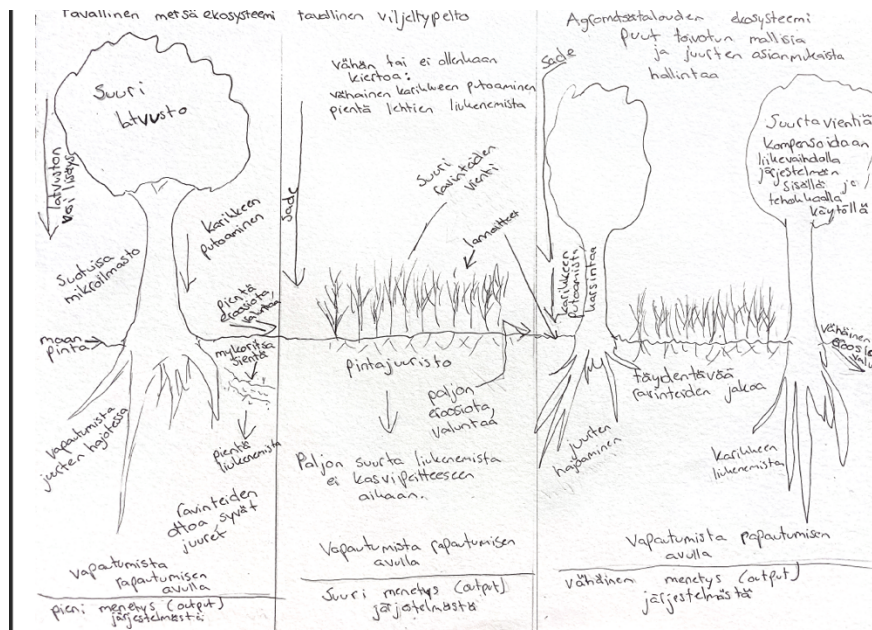 Tavallinen metsä ekosysteemi
Suuri
latvusto
latvuston
vesi lisäys
karikkeen
putoaminen
Suotuisa
mikroilmasto
pientä
eroosiota,
valuntaa
maan
pinta
mykoritsa
sientä
vapautumista
juurten hajotessa
pientä
liukenemista
ravinteiden
ottoa syvät
juuret
Vapautumista
rapautumisen
avulla
pieni menetys (output)
järjestelmästä
tavallinen viljeltypelto
vähän tai ei ollenkaan
kiertoa:
vähäinen karikkeen putoaminen
pientä lehtien liukenemista
Sade
Suuri
ravinteiden
vienti
lannoitteet
pintajuuristo
paljon
eroosiota,
valuntaa
Paljon suurta liukenemista
ei kasvipeitteeseen
aikaan.
Vapautumista rapautumisen
avulla
Suuri menetys (output)
järjestelmästä
Agrometsätalouden ekosysteemi
puut toivotun mallisia
ja juurten asianmukaista
hallintaa
Sade
Suurta vientiä
kompensoidaan
liikevaihdolla
järjestelmän
sisällä ja
tehokkaalla
käytöllä
karikkeen
putoamista
karsintaa
vähäinen
eroosio
valu
täydentävää
ravinteiden jakoa
juurten
hajoaminen
karikkeen
liukenemista
Vapautumista papautumisen
avulla
vähäinen menetys (output)
järjestelmästä